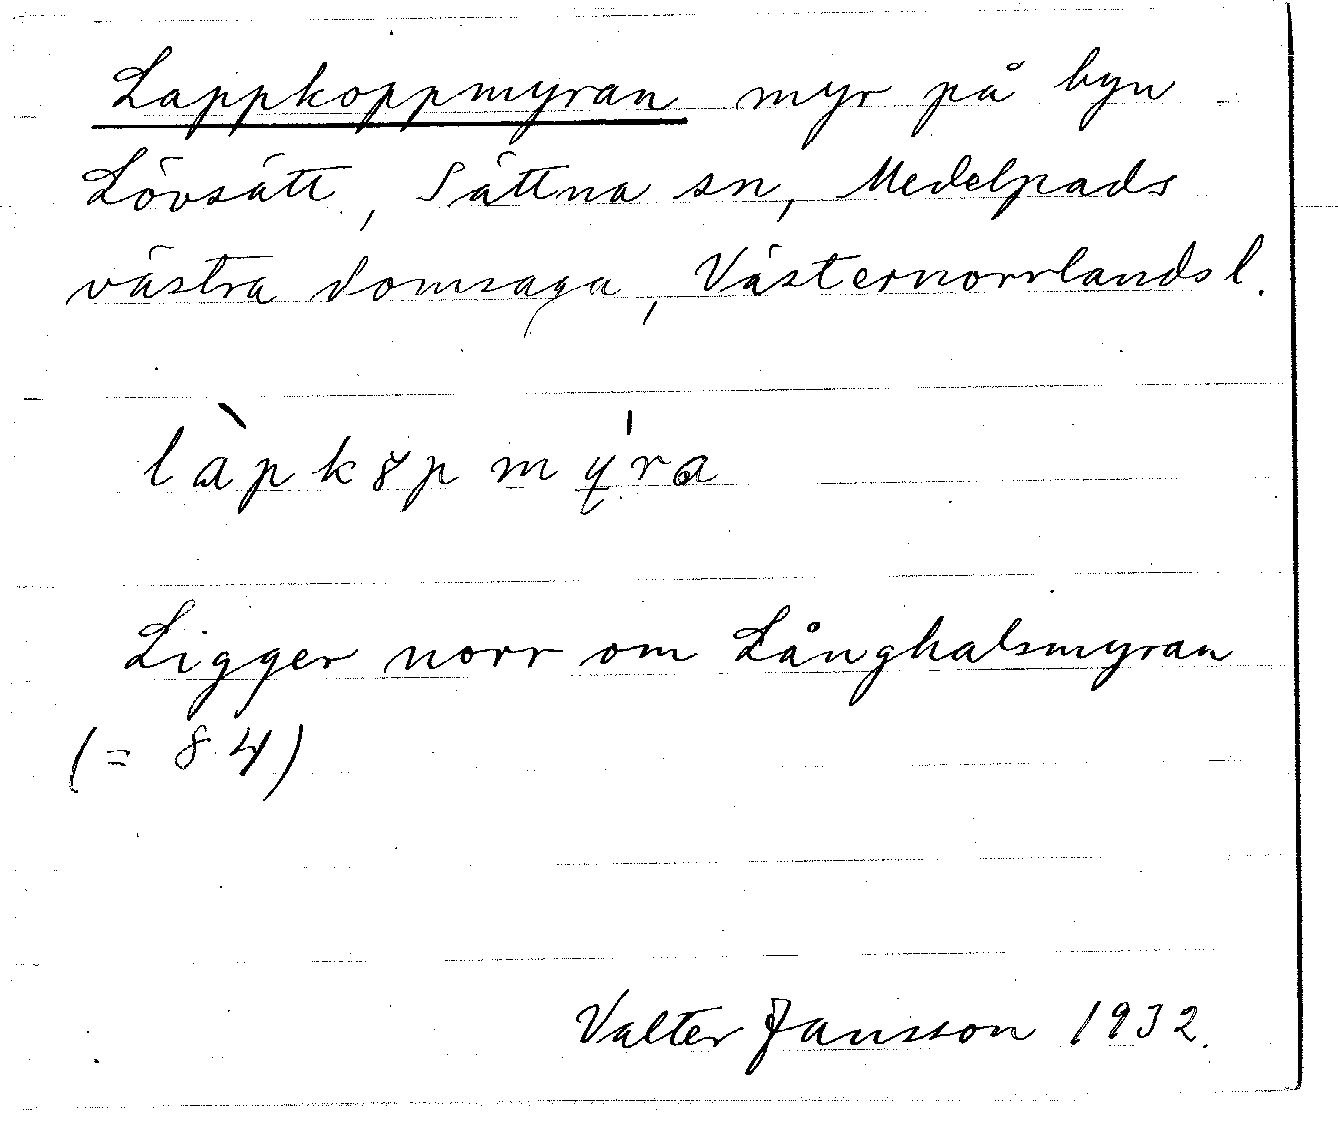 Lappkoppmyran myr på byn
Lövsätt, Sättna sn, Medelpads
västra domsaga, Västernorrlands l.
làpkȣpmý̨ra
Ligger norr om Långhalsmyran
(= 84)
Valter Jansson 1932.